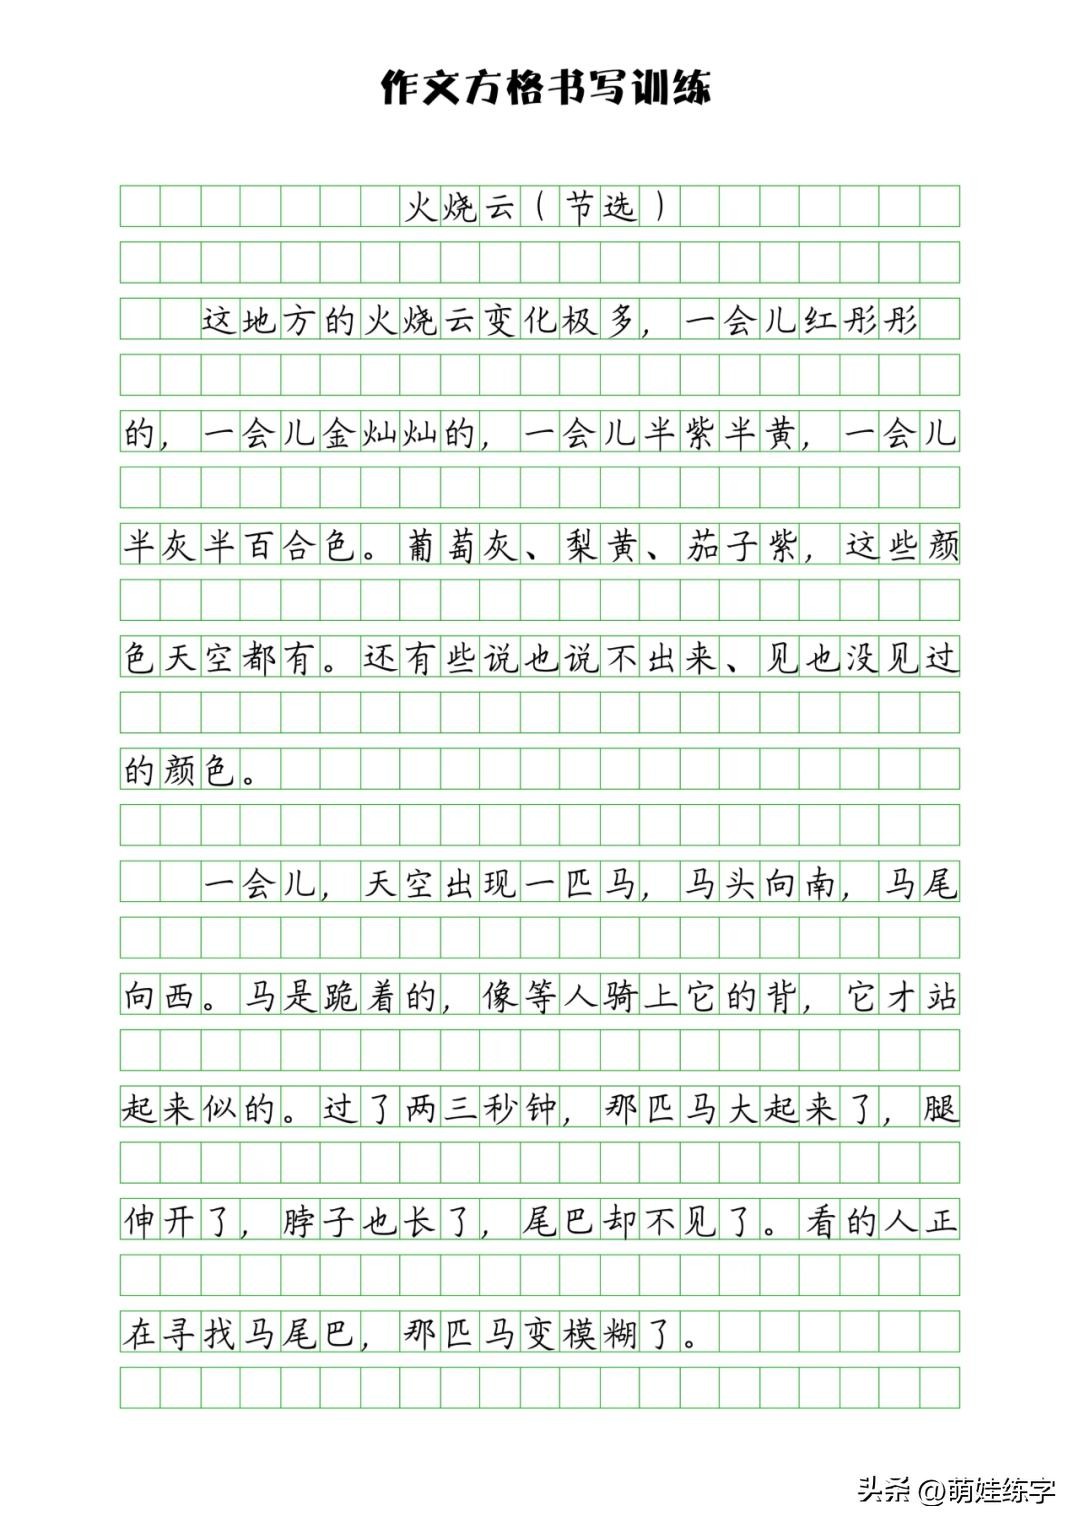 作文方格书写训练
火烧云（节选）
这地方的火烧云变化极多，一会儿红彤彤
的，一会儿金灿灿的，一会儿半紫半黄，一会儿
半灰半百合色。葡萄灰、梨黄、茄子紫，这些颜
色天空都有。还有些说也说不出来、见也没见过
的颜色。
一会儿，天空出现一匹马，马头向南，马尾
向西。马是跪着的，像等人骑上它的背，它才站
起来似的。过了两三秒钟，那匹马大起来了，腿
伸开了，脖子也长了，尾巴却不见了。看的人正
在寻找马尾巴，那匹马变模糊了。
头条 @萌娃练字